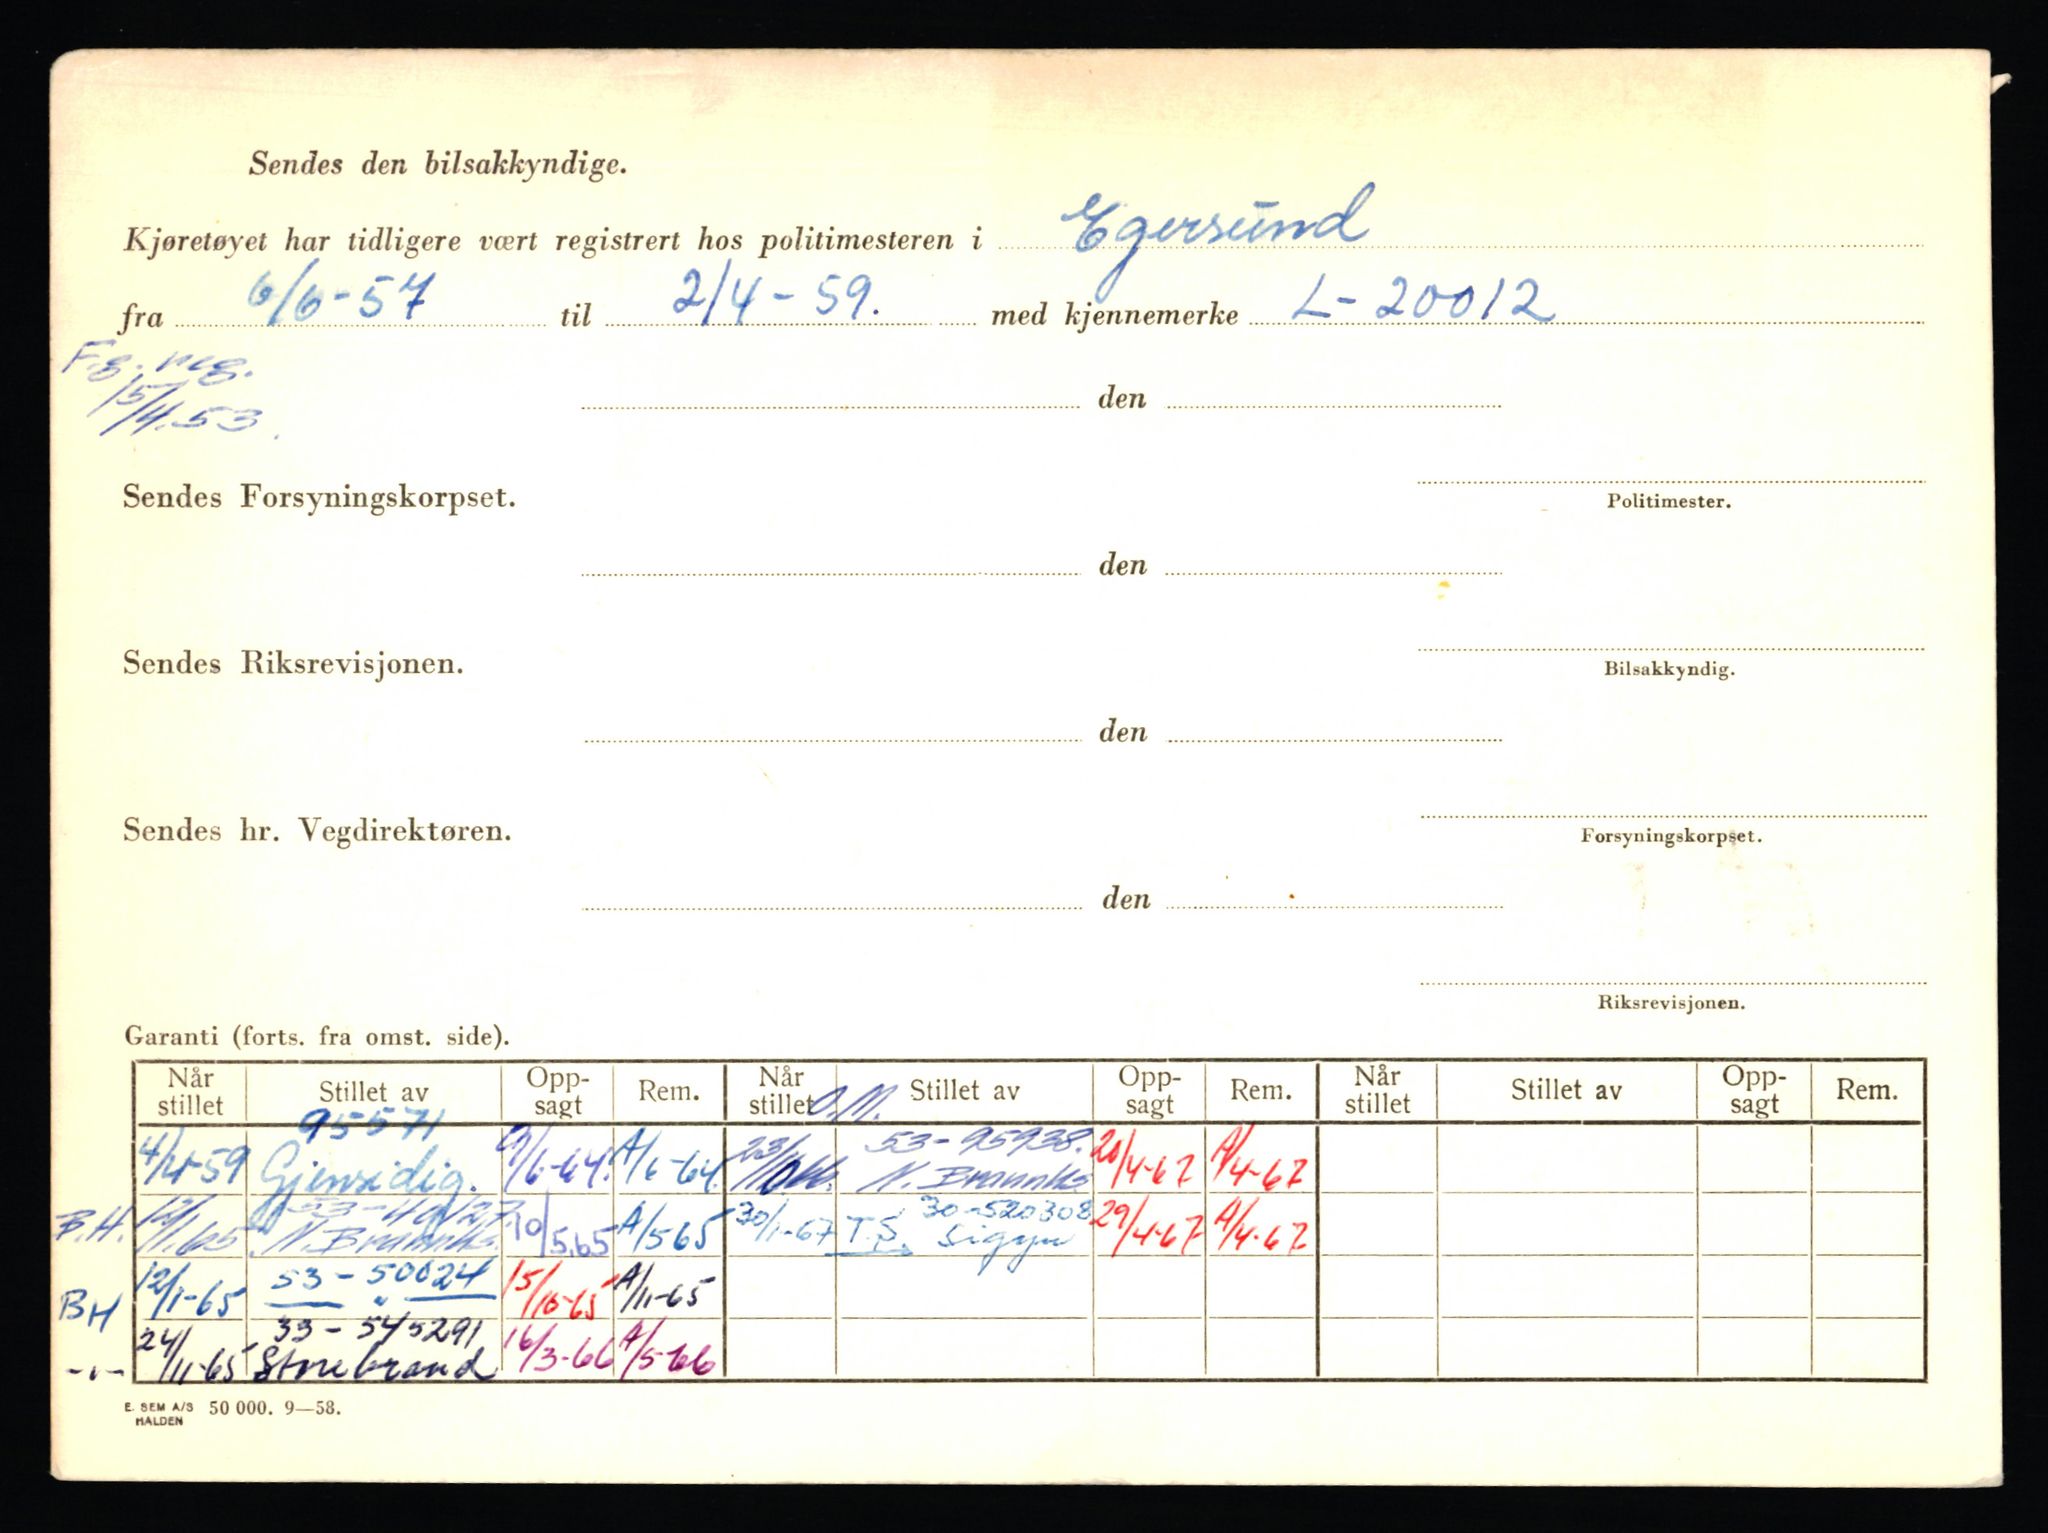 Sendes den bilsakkyndige.
Kjøretøyet har tidligere vært registrert hos politimesteren i Egersund
fra 6/6-57 til 2/4-59. med kjennemerke L-20012
F.g. neg.
15/4.53.
den
Sendes Forsyningskorpset.
Politimester.
den
Sendes Riksrevisjonen.
Bilsakkyndig.
den
Sendes hr. Vegdirektøren.
Forsyningskorpset.
den
Riksrevisjonen.
Garanti (forts. fra omst. side).
Når stillet Stillet av Opp-sagt Rem. Når stillet Stillet av Opp-sagt Rem. Når stillet Stillet av Opp-sagt Rem.
95571 O.M.
4/4-59 Gjensidig. 9/6-64. A/6-64. 23/10.66. 53-95938. N. Brannks. 20/4-67 A/4-67
B.H. 12/1.65 53-40127. N. Brannks. 10/5.65 A/5-65 30/1-67 T.S. 30-520308 Sigyn 29/4-67 A/4-67
BH 12/1-65 53-50024 " 15/10-65 A/11-65
-"- 24/11-65 33-545291 Storebrand 16/3-66 A/5-66
E. SEM A/S 50 000. 9—58.
HALDEN